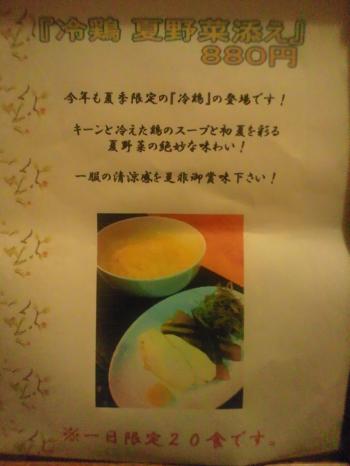 『冷鶏 夏野菜添え』
880円
今年も夏季限定の『冷鶏』の登場です！
キーンと冷えた鶏のスープと初夏を彩る
夏野菜の絶妙な味わい！
一服の清涼感を是非御賞味下さい！
※一日限定２０食です。